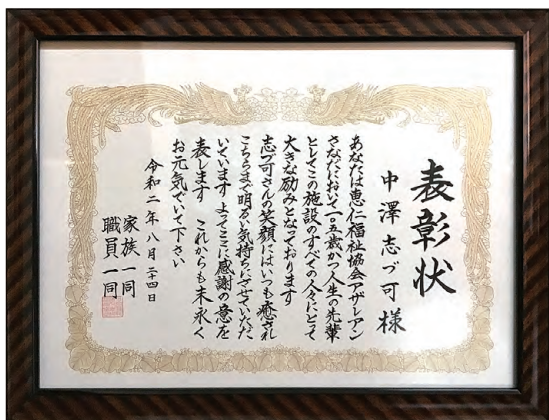 表彰状
中澤志づ可様
あなたは恵仁福祉協会アザレアン
さなだにおいて一〇五歳かつ人生の先輩
としてこの施設のすべての人々にとって
大きな励みとなっております
志づ可さんの笑顔にはいつも癒され
こちらまで明るい気持ちにさせていただ
いています よってここに感謝の意を
表します これからも末永く
お元気でいて下さい
令和二年八月二十四日
家族一同
職員一同